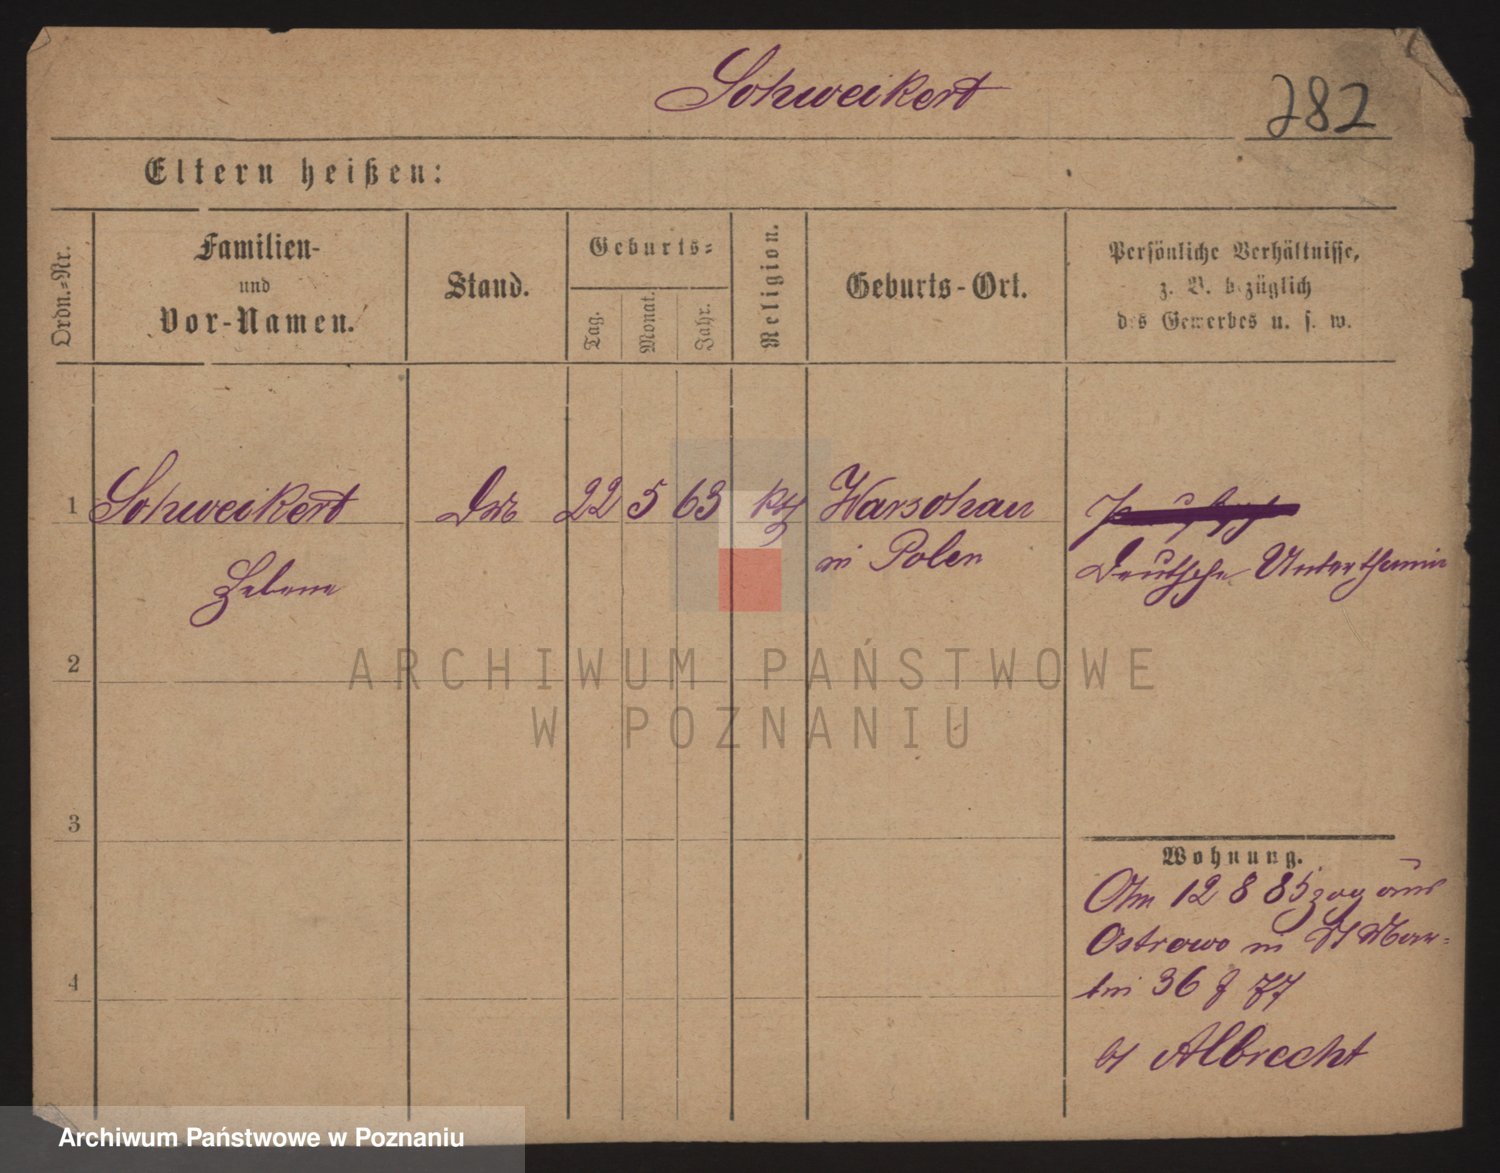 Schweikert
282
Eltern heißen:
Ordn.-Nr.
Familien-
und
Vor-Namen.
Stand.
Geburts-
Tag.
Monat.
Jahr.
Religion.
Geburts-Ort.
Persönliche Verhältnisse,
z. B. bezüglich
des Gewerbes u. s. w.
1 Schweikert 22 5 63 Warschau
in Polen
Helene
Deutsche Unterthanin
2
ARCHIWUM PAŃSTWOWE
W POZNANIU
3
Wohnung.
Am 12 8 85 zog aus
Ostrowo in St Mar-
tin 36 z 77
4
bei Albrecht
Archiwum Państwowe w Poznaniu